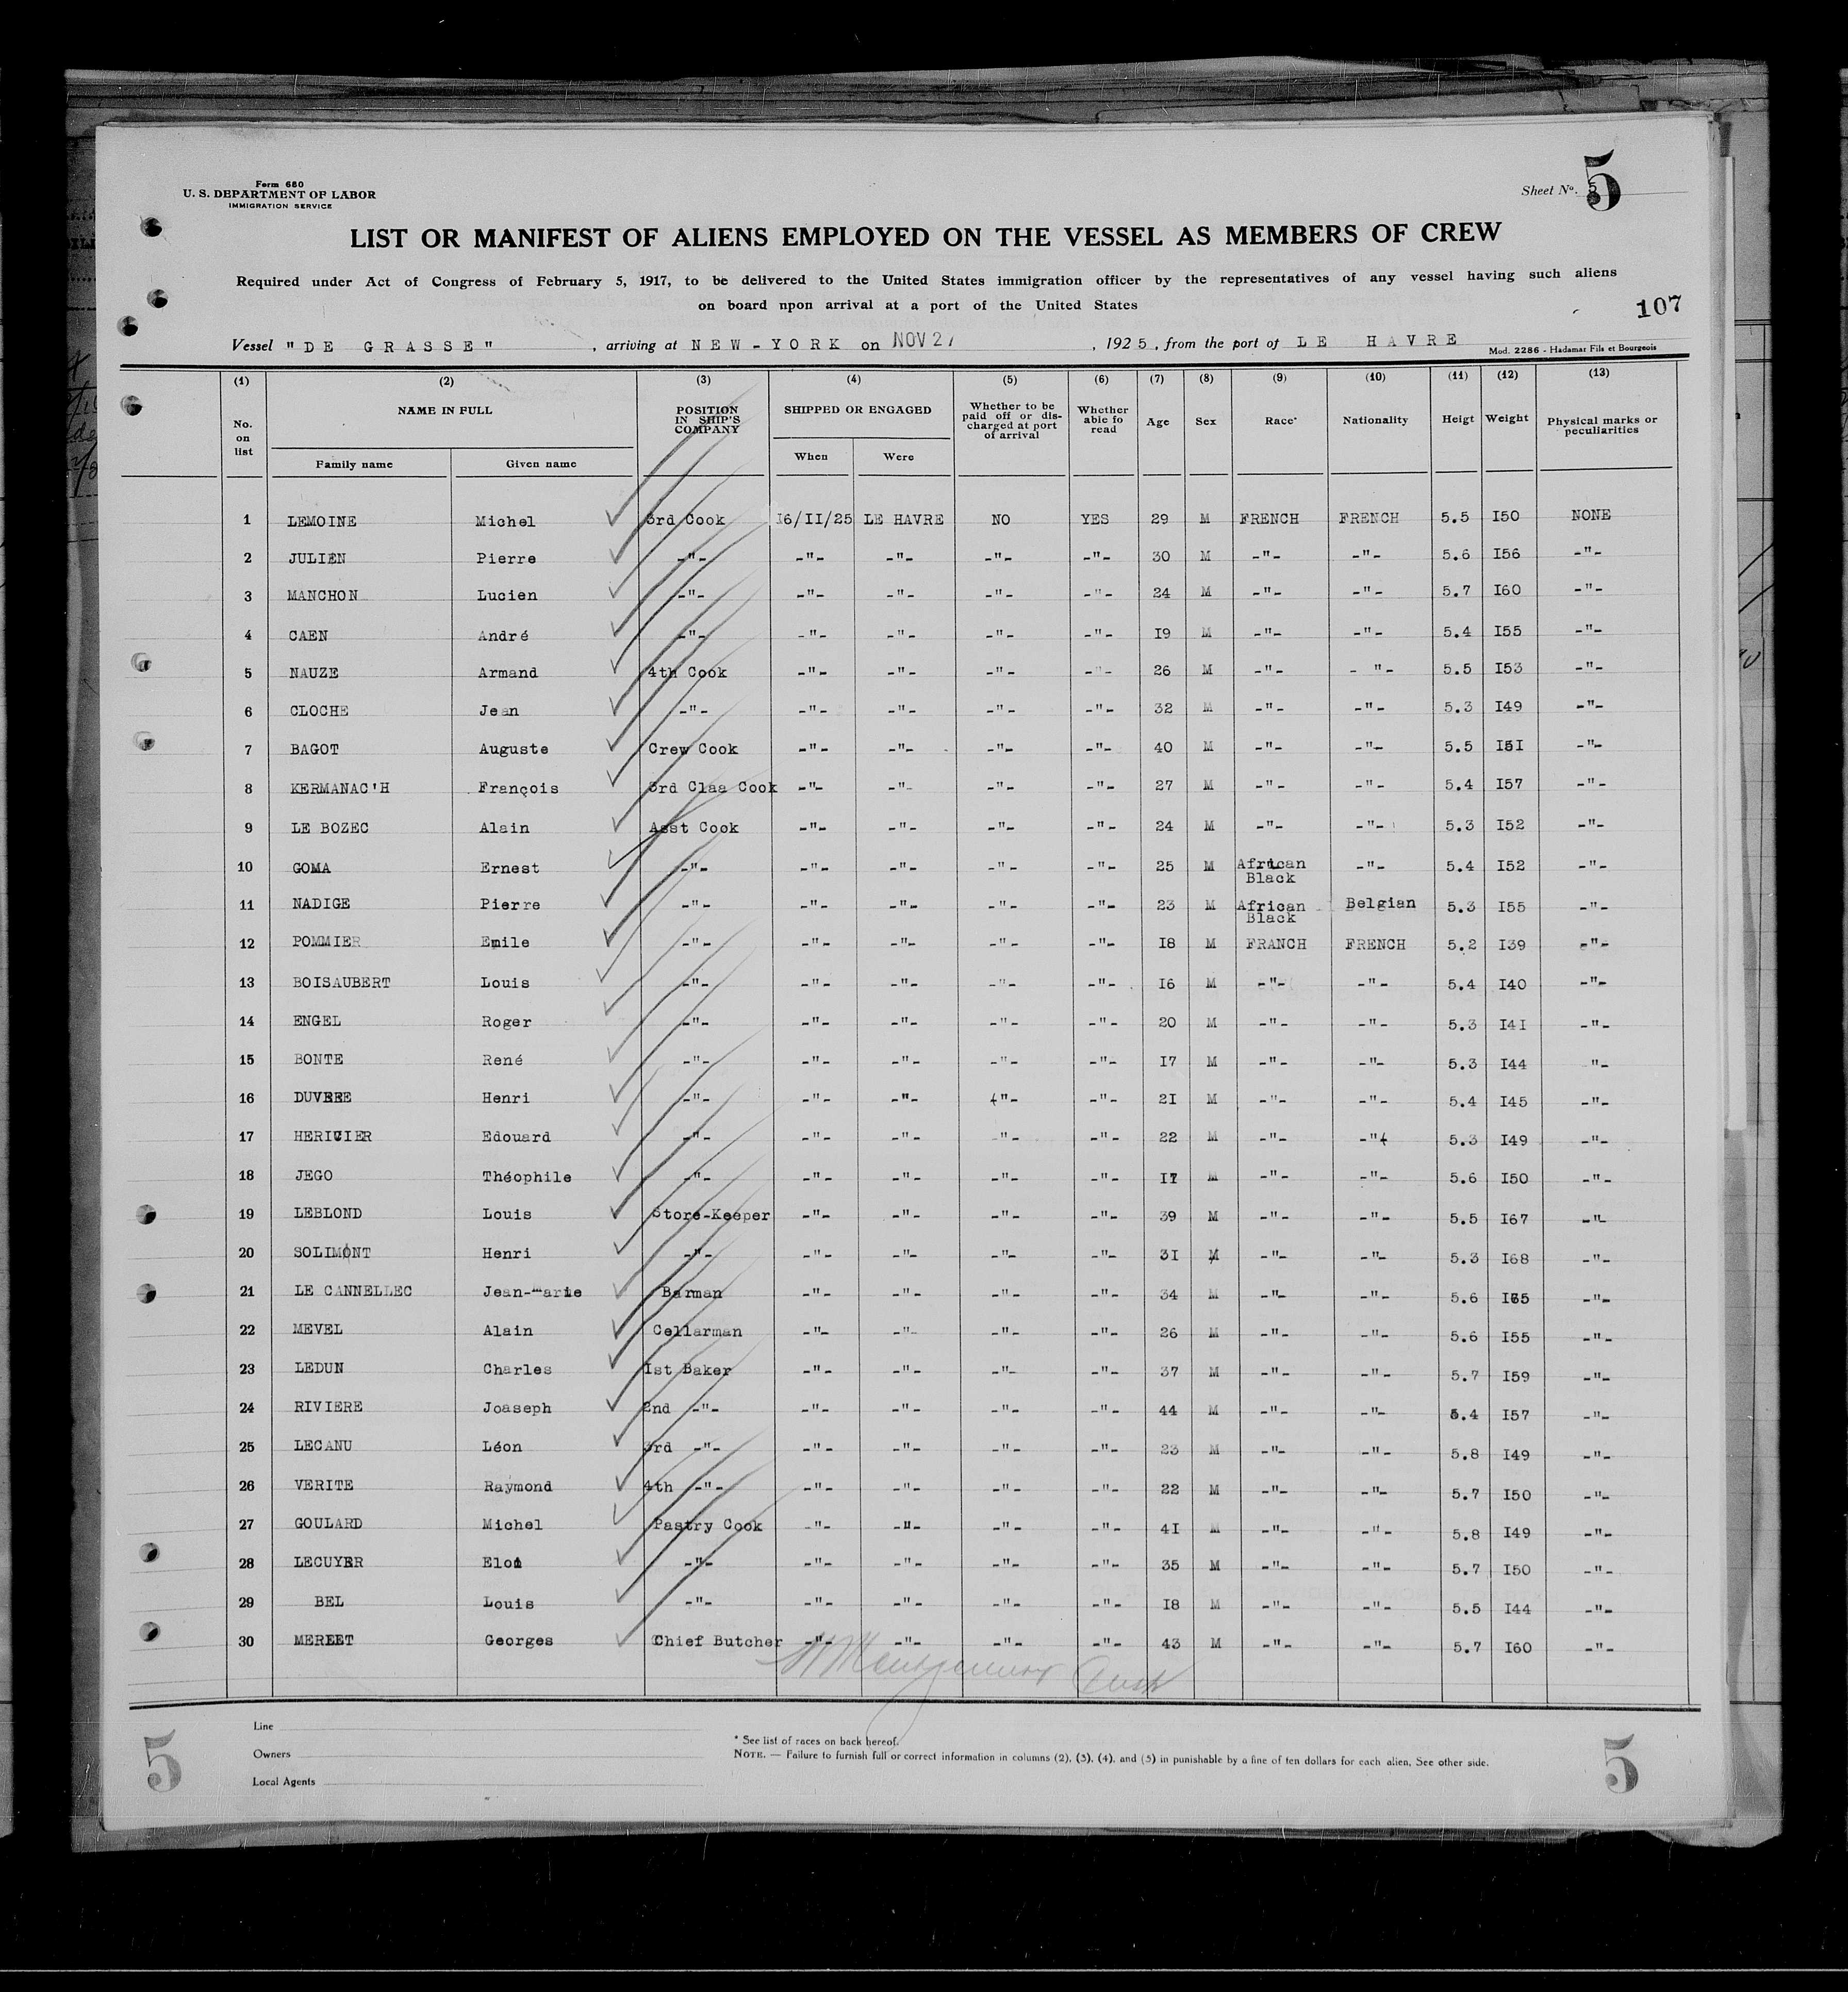 Form 680
U. S. DEPARTMENT OF LABOR
IMMIGRATION SERVICE
Sheet No. 5
5
LIST OR MANIFEST OF ALIENS EMPLOYED ON THE VESSEL AS MEMBERS OF CREW
Required under Act of Congress of February 5, 1917, to be delivered to the United States immigration officer by the representatives of any vessel having such aliens
on board npon arrival at a port of the United States
107
Vessel "DE GRASSE" , arriving at NEW-YORK on NOV 27 , 1925, from the port of LE HAVRE
Mod. 2286 - Hadamar Fils et Bourgeois
(1) (2) (3) (4) (5) (6) (7) (8) (9) (10) (11) (12) (13)
No. on list NAME IN FULL POSITION IN SHIP'S COMPANY SHIPPED OR ENGAGED Whether to be paid off or discharged at port of arrival Whether able fo read Age Sex Race* Nationality Heigt Weight Physical marks or peculiarities
Family name Given name When Were
1 LEMOINE Michel 3rd Cook 16/II/25 LE HAVRE NO YES 29 M FRENCH FRENCH 5.5 I50 NONE
2 JULIEN Pierre -"- -"- -"- -"- -"- 30 M -"- -"- 5.6 I56 -"-
3 MANCHON Lucien -"- -"- -"- -"- -"- 24 M -"- -"- 5.7 I60 -"-
4 CAEN André -"- -"- -"- -"- -"- I9 M -"- -"- 5.4 I55 -"-
5 NAUZE Armand 4th Cook -"- -"- -"- -"- 26 M -"- - "- 5.5 I53 -"-
6 CLOCHE Jean -"- -"- -"- -"- -"- 32 M -"- -"- 5.3 I49 -"-
7 BAGOT Auguste Crew Cook -"- -"- -"- -"- 40 M -"- -"- 5.5 I5I -"-
8 KERMANAC'H François 3rd Claa Cook -"- -"- -"- -"- 27 M -"- -"- 5.4 I57 -"-
9 LE BOZEC Alain Asst Cook -"- -"- -"- -"- 24 M -"- -"- 5.3 I52 -"-
10 GOMA Ernest -"- -"- -"- -"- -"- 25 M African Black -"- 5.4 I52 -"-
11 NADIGE Pierre -"- -"- -"- -"- -"- 23 M African Black Belgian 5.3 I55 -"-
12 POMMIER Emile -"- -"- -"- -"- -"- I8 M FRANCH FRENCH 5.2 I39 -"-
13 BOISAUBERT Louis -"- -"- -"- -"- -"- I6 M -"- -"- 5.4 I40 -"-
14 ENGEL Roger -"- -"- -"- -"- -"- 20 M -"- -"- 5.3 I4I -"-
15 BONTE René -"- -"- -"- -"- -"- I7 M -"- -"- 5.3 I44 -"-
16 Henri -"- -"- -"- -"- -"- 21 M -"- -"- 5.4 I45 -"-
17 Edouard -"- -"- -"- -"- -"- 22 M -"- -"- 5.3 I49 -"-
18 JEGO Théophile -"- -"- -"- -"- -"- I7 M -"- -"- 5.6 I50 -"-
19 LEBLOND Louis Store-Keeper -"- -"- -"- -"- 39 M -"- -"- 5.5 I67 -"-
20 SOLIMONT Henri -"- -"- -"- -"- -"- 3I M -"- -"- 5.3 I68 -"-
21 LE CANNELLEC Jean-Marie Barman -"- -"- -"- -"- 34 M -"- -"- 5.6 I65 -"-
22 MEVEL Alain Cellarman -"- -"- -"- -"- 26 M -"- -"- 5.6 I55 -"-
23 LEDUN Charles 1st Baker -"- -"- -"- -"- 37 M -"- -"- 5.7 I59 -"-
24 RIVIERE Joaseph 2nd -"- -"- -"- -"- -"- 44 M -"- -"- 5.4 I57 -"-
25 LECANU Léon 3rd -"- -"- -"- -"- -"- 23 M -"- -"- 5.8 I49 -"-
26 VERITE Raymond 4th -"- -"- -"- -"- -"- 22 M -"- -"- 5.7 I50 -"-
27 GOULARD Michel Pastry Cook -"- -"- -"- -"- 4I M -"- -"- 5.8 I49 -"-
28 LECUYER Eloi -"- -"- -"- -"- -"- 35 M -"- -"- 5.7 I50 -"-
29 BEL Louis -"- -"- -"- -"- -"- I8 M -"- -"- 5.5 I44 -"-
30 Georges Chief Butcher -"- -"- -"- -"- 43 M -"- -"- 5.7 I60 -"-
Line
Owners
Local Agents
* See list of races on back hereof.
NOTE. — Failure to furnish full or correct information in columns (2), (3), (4), and (5) in punishable by a fine of ten dollars for each alien, See other side.
5
5